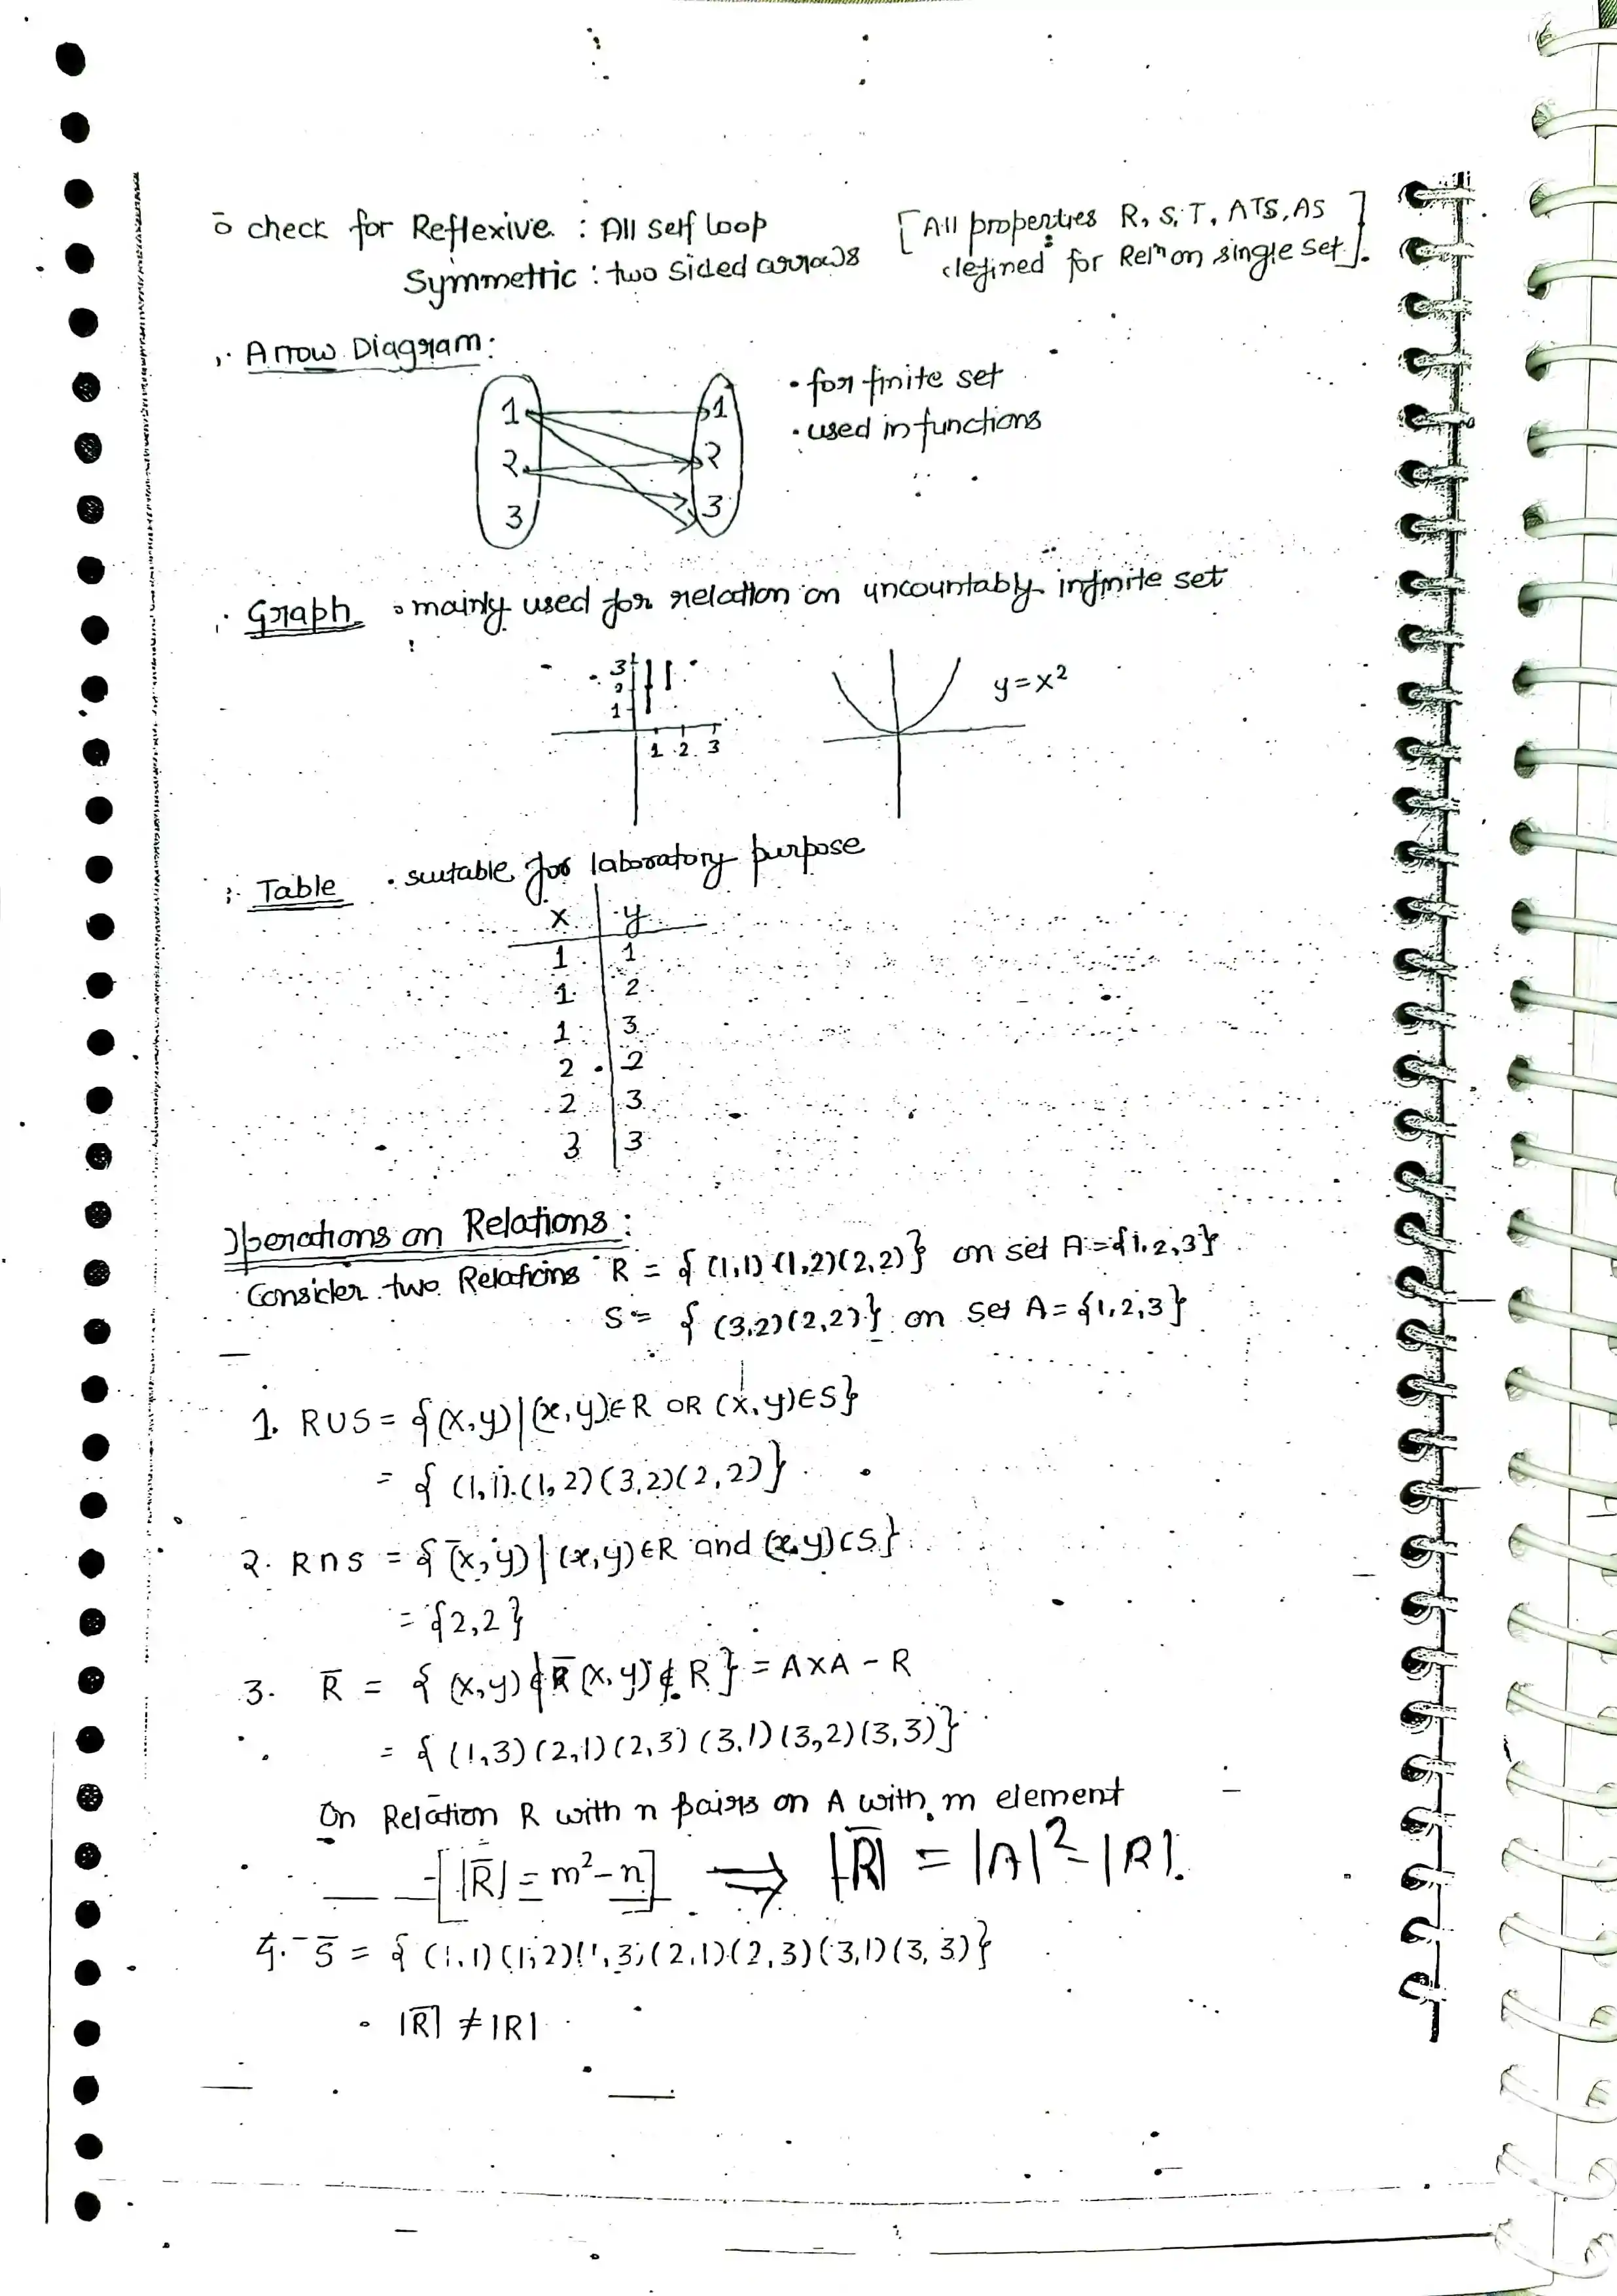 o check for Reflexive : All self loop [All properties R, S, T, ATS, AS
Symmettric : two sided arrows defined for Relⁿ on single set].
Arrow Diagram:
1 1 • for finite set
2 2 • used in functions
3 3
Graph mainly used for relation on uncountably infinite set
3
2
1
1 2 3
y = x²
Table • suitable for laboratory purpose
x | y
1 | 1
1 | 2
1 | 3
2 | 2
2 | 3
3 | 3
Operations on Relations :
Consider two Relations R = { (1,1) (1,2) (2,2) } on set A = {1,2,3}
S = { (3,2) (2,2) } on set A = {1,2,3}
1. R∪S = {(x,y) | (x,y)∈R OR (x,y)∈S}
= { (1,1) (1,2) (3,2) (2,2) }
2. R∩S = {(x,y) | (x,y)∈R and (x,y)∈S}
= {2,2}
3. R̅ = { (x,y) | (x,y) ∉ R } = A×A - R
= { (1,3) (2,1) (2,3) (3,1) (3,2) (3,3) }
On Relation R with n pairs on A with m element
[ |R̅| = m² - n ] ⟹ |R̅| = |A|² - |R|.
4. S̅ = { (1,1) (1,2) (1,3) (2,1) (2,3) (3,1) (3,3) }
• |R̅| ≠ |R|